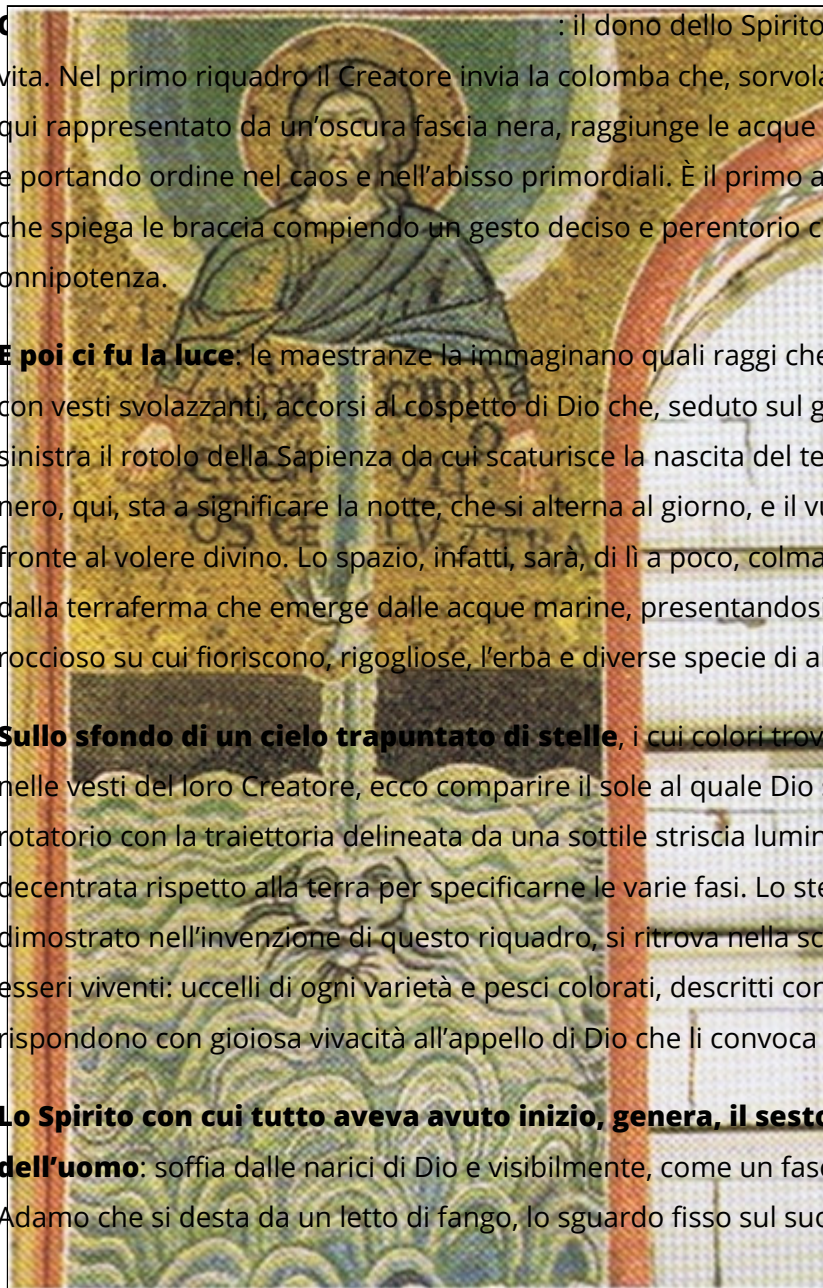 : il dono dello Spirito
vita. Nel primo riquadro il Creatore invia la colomba che, sorvola
qui rappresentato da un’oscura fascia nera, raggiunge le acque
e portando ordine nel caos e nell’abisso primordiali. È il primo a
che spiega le braccia compiendo un gesto deciso e perentorio c
onnipotenza.
E poi ci fu la luce: le maestranze la immaginano quali raggi che
con vesti svolazzanti, accorsi al cospetto di Dio che, seduto sul g
sinistra il rotolo della Sapienza da cui scaturisce la nascita del te
nero, qui, sta a significare la notte, che si alterna al giorno, e il vu
fronte al volere divino. Lo spazio, infatti, sarà, di lì a poco, colma
dalla terraferma che emerge dalle acque marine, presentandosi
roccioso su cui fioriscono, rigogliose, l’erba e diverse specie di a
Sullo sfondo di un cielo trapuntato di stelle, i cui colori trov
nelle vesti del loro Creatore, ecco comparire il sole al quale Dio
rotatorio con la traiettoria delineata da una sottile striscia lumin
decentrata rispetto alla terra per specificarne le varie fasi. Lo ste
dimostrato nell’invenzione di questo riquadro, si ritrova nella sc
esseri viventi: uccelli di ogni varietà e pesci colorati, descritti con
rispondono con gioiosa vivacità all’appello di Dio che li convoca
Lo Spirito con cui tutto aveva avuto inizio, genera, il sesto
dell’uomo: soffia dalle narici di Dio e visibilmente, come un fasc
Adamo che si desta da un letto di fango, lo sguardo fisso sul suo